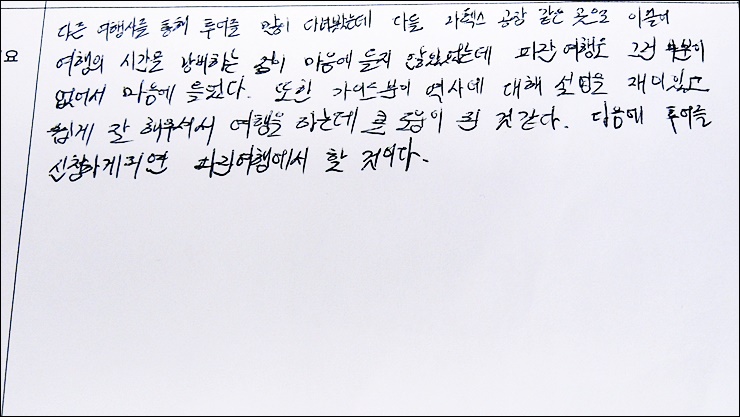 다른 여행사를 통해 투어를 많이 다녀봤는데 다들 라텍스 공장 같은 곳으로 이끌어
요 여행의 시간을 낭비하는 점이 마음에 들지 않았었는데 파란여행은 그런 부분이
없어서 마음에 들었다. 또한 가이드분이 역사에 대해 설명을 재미있고
쉽게 잘 해주셔서 여행을 하는데 큰 도움이 된 것 같다. 다음에 투어를
신청하게되면 파란여행에서 할 것이다.